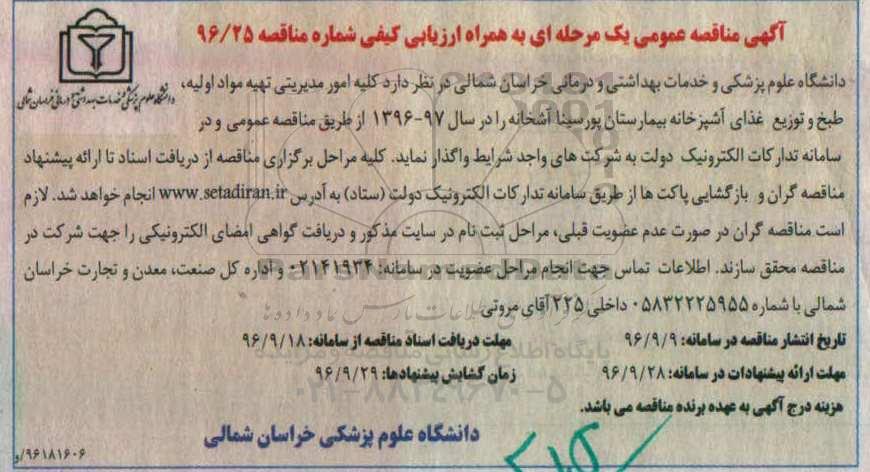 آگهی مناقصه عمومی یک مرحله ای به همراه ارزیابی کیفی شماره مناقصه ۹۶/۲۵
دانشگاه علوم پزشکی و خدمات بهداشتی درمانی خراسان شمالی
دانشگاه علوم پزشکی و خدمات بهداشتی و درمانی خراسان شمالی در نظر دارد کلیه امور مدیریتی تهیه مواد اولیه،
طبخ و توزیع غذای آشپزخانه بیمارستان پورسینا آشخانه را در سال ۹۷-۱۳۹۶ از طریق مناقصه عمومی و در
سامانه تدارکات الکترونیک دولت به شرکت های واجد شرایط واگذار نماید. کلیه مراحل برگزاری مناقصه از دریافت اسناد تا ارائه پیشنهاد
مناقصه گران و بازگشایی پاکت ها از طریق سامانه تدارکات الکترونیک دولت (ستاد) به آدرس www.setadiran.ir انجام خواهد شد. لازم
است مناقصه گران در صورت عدم عضویت قبلی، مراحل ثبت نام در سایت مذکور و دریافت گواهی امضای الکترونیکی را جهت شرکت در
مناقصه محقق سازند. اطلاعات تماس جهت انجام مراحل عضویت در سامانه: ۰۲۱۴۱۹۳۴ و اداره کل صنعت، معدن و تجارت خراسان
شمالی با شماره ۰۵۸۳۲۲۲۵۹۵۵ داخلی ۲۲۵ آقای مروتی
تاریخ انتشار مناقصه در سامانه: ۹۶/۹/۹ مهلت دریافت اسناد مناقصه از سامانه: ۹۶/۹/۱۸
مهلت ارائه پیشنهادات در سامانه: ۹۶/۹/۲۸ زمان گشایش پیشنهادها: ۹۶/۹/۲۹
هزینه درج آگهی به عهده برنده مناقصه می باشد.
دانشگاه علوم پزشکی خراسان شمالی
۹۶۱۸۱۶۰۶/و
پایگاه اطلاع رسانی مناقصه و مزایده
۰۲۱-۸۸۳۴۹۶۷۰-۵